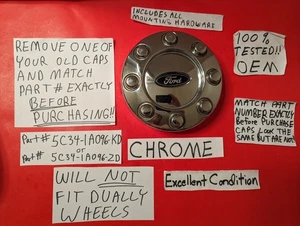 INCLUDES ALL
MOUNTING HARDWARE
REMOVE ONE OF
YOUR OLD CAPS
AND MATCH
PART # EXACTLY
BEFORE
PURCHASING!!
100%
TESTED!!
OEM
Ford
MATCH PART
NUMBER EXACTLY
BeFore PURCHASE
CAPS LOOK THE
SAME BUT ARE NOT!
Part# 5C34-1A096-KD
or
Part# 5C34-1A096-ZD
CHROME
WILL NOT
FIT DUALLY
WHEELS
Excellent Condition